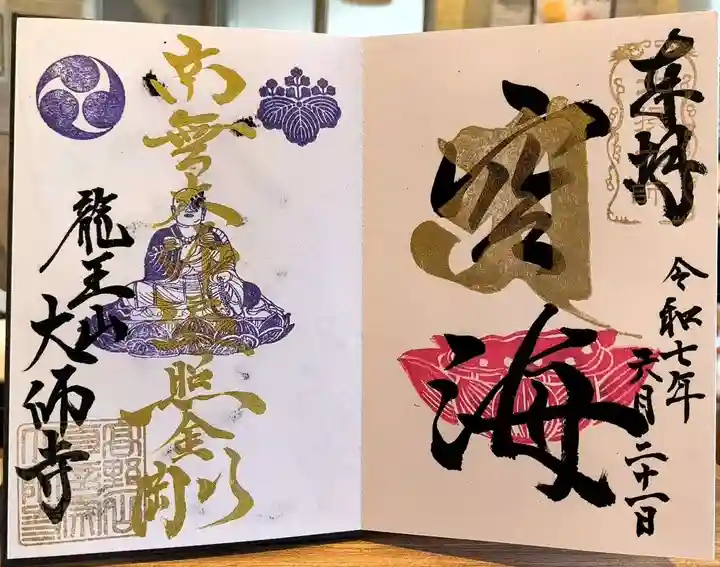 奉拝
空海
令和七年
六月二十一日
南無大師遍照金剛
龍王山
大師寺
高野山